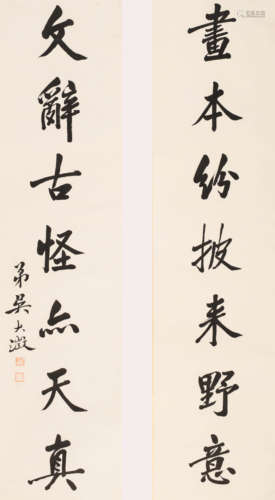 畫本紛披来野意
文辭古怪亦天真
弟吳大澂